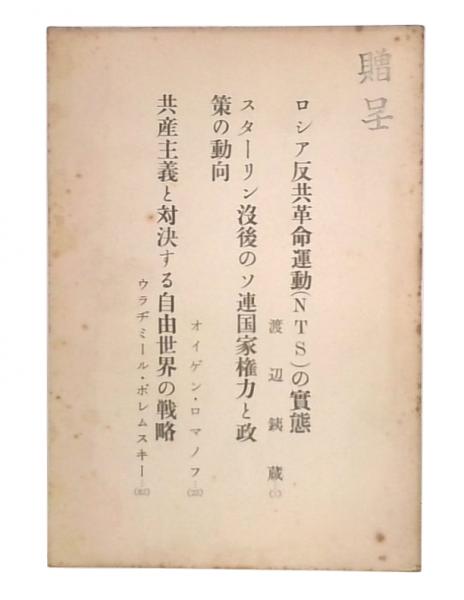 贈呈
ロシア反共革命運動(NTS)の實態
渡辺銕蔵…(1)
スターリン没後のソ連国家権力と政
策の動向
オイゲン・ロマノフ…(23)
共産主義と対決する自由世界の戦略
ウラヂミール・ポレムスキー…(62)